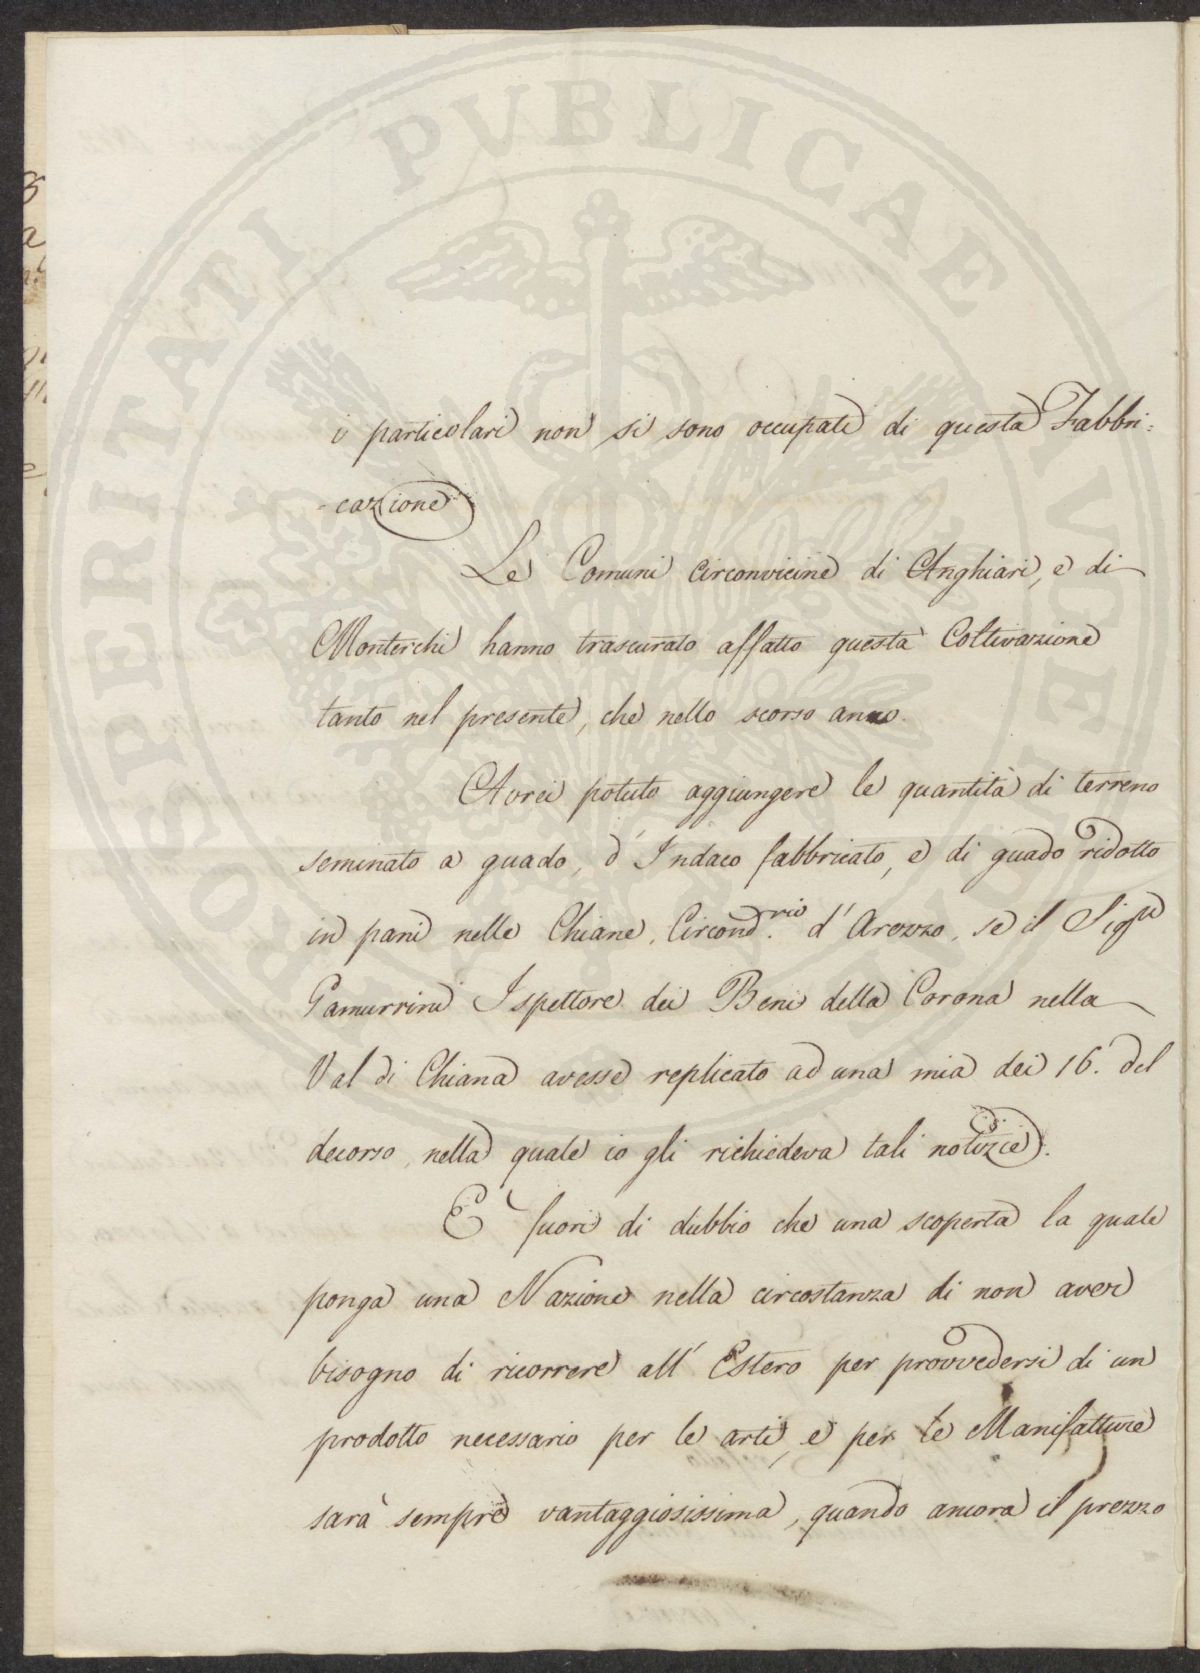 PROSPERITATI PUBLICAE AUGENDAE
i particolari non si sono occupati di questa Fabbri=
-cazione
Le Comuni circonvicine di Anghiari, e di
Monterchi hanno trascurato affatto questa Coltivazione
tanto nel presente, che nello scorso anno.
Avrei potuto aggiungere le quantità di terreno
seminato a guado, d'Indaco fabbricato, e di guado ridotto
in pani nelle Chiane, Circond.rio d'Arezzo, se il Sigre
Gamurrini Ispettore dei Beni della Corona nella
Val di Chiana avesse replicato ad una mia dei 16. del
decorso, nella quale io gli richiedeva tali notizie.
È fuori di dubbio che una scoperta la quale
ponga una Nazione nella circostanza di non aver
bisogno di ricorrere all'Estero per provvedersi di un
prodotto necessario per le arti, e per le Manifatture
sarà sempre vantaggiosissima, quando ancora il prezzo